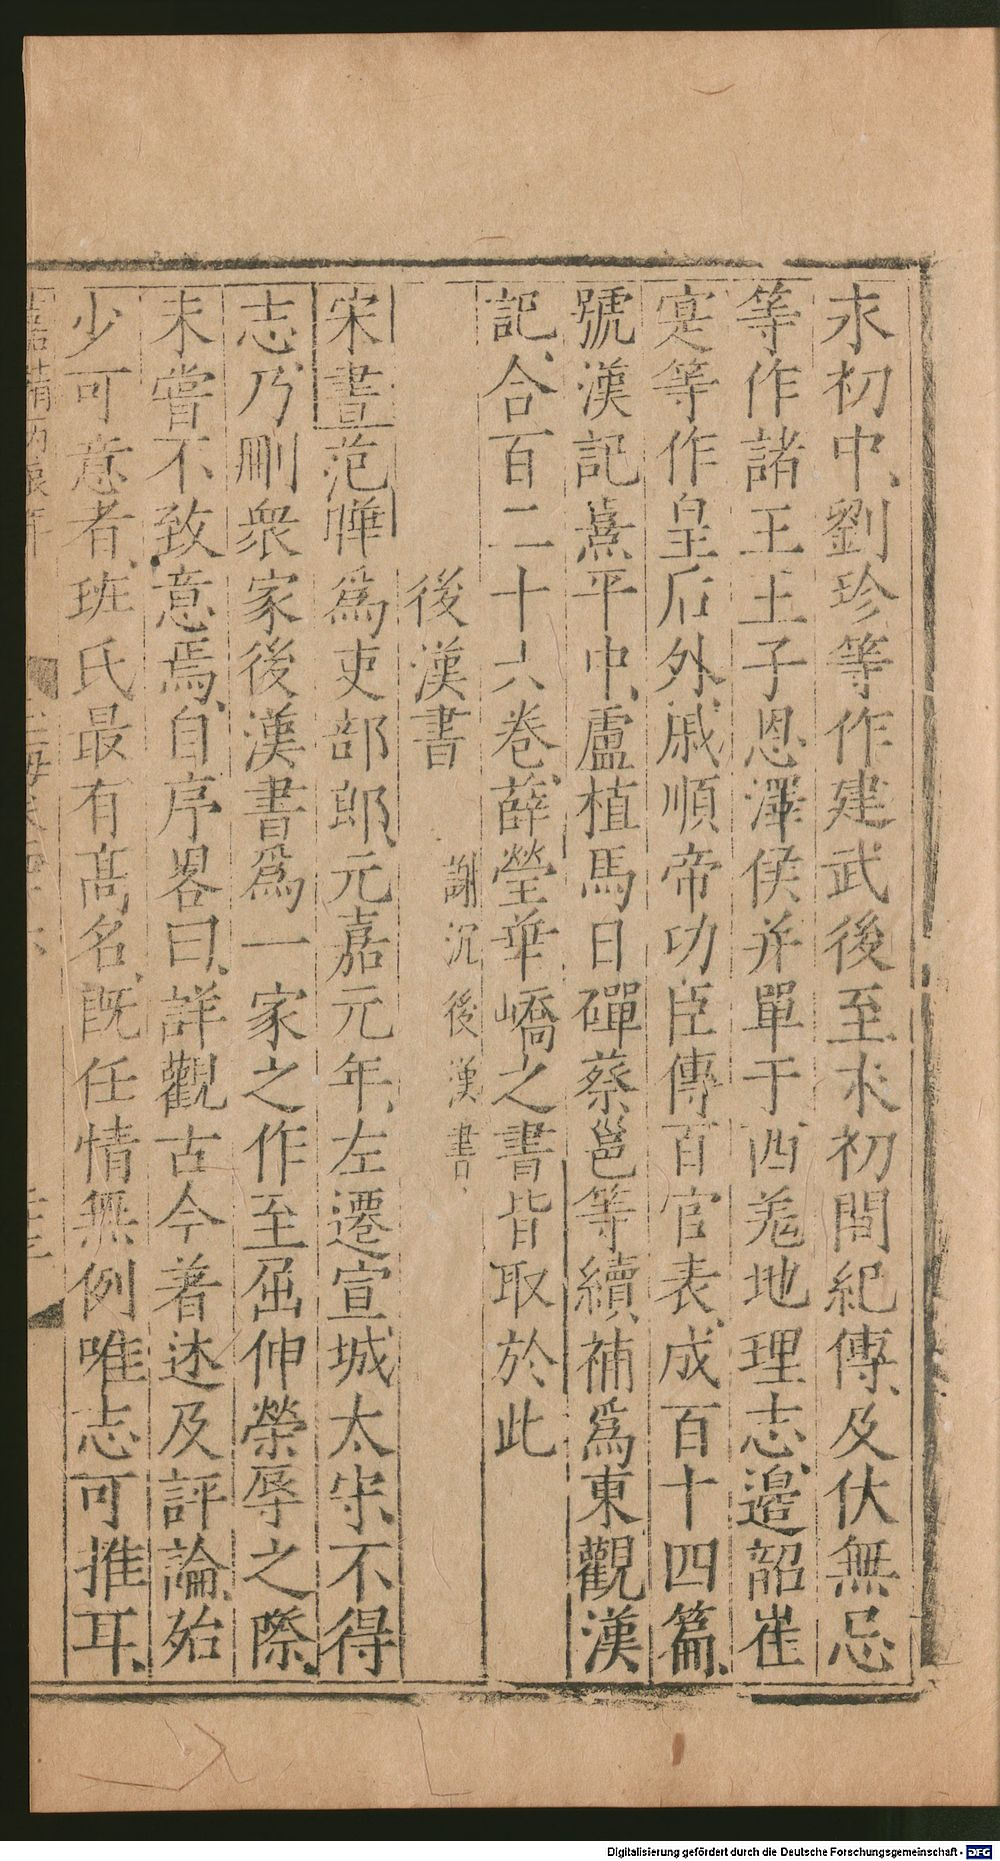 永初中劉珍等作建武後至永初間紀傳及伏無忌
等作諸王王子恩澤侯并單于西羌地理志邊韶崔
寔等作皇后外戚順帝功臣傳百官表成百十四篇
號漢記熹平中盧植馬日磾蔡邕等續補爲東觀漢
記合百二十六卷薛瑩華嶠之書皆取於此
後漢書 謝沉後漢書
宋書范曄爲吏部郎元嘉元年左遷宣城太守不得
志乃刪衆家後漢書爲一家之作至屈伸榮辱之際
未嘗不致意焉自序畧曰詳觀古今著述及評論殆
少可意者班氏最有高名既任情無例唯志可推耳
Digitalisierung gefördert durch die Deutsche Forschungsgemeinschaft - DFG